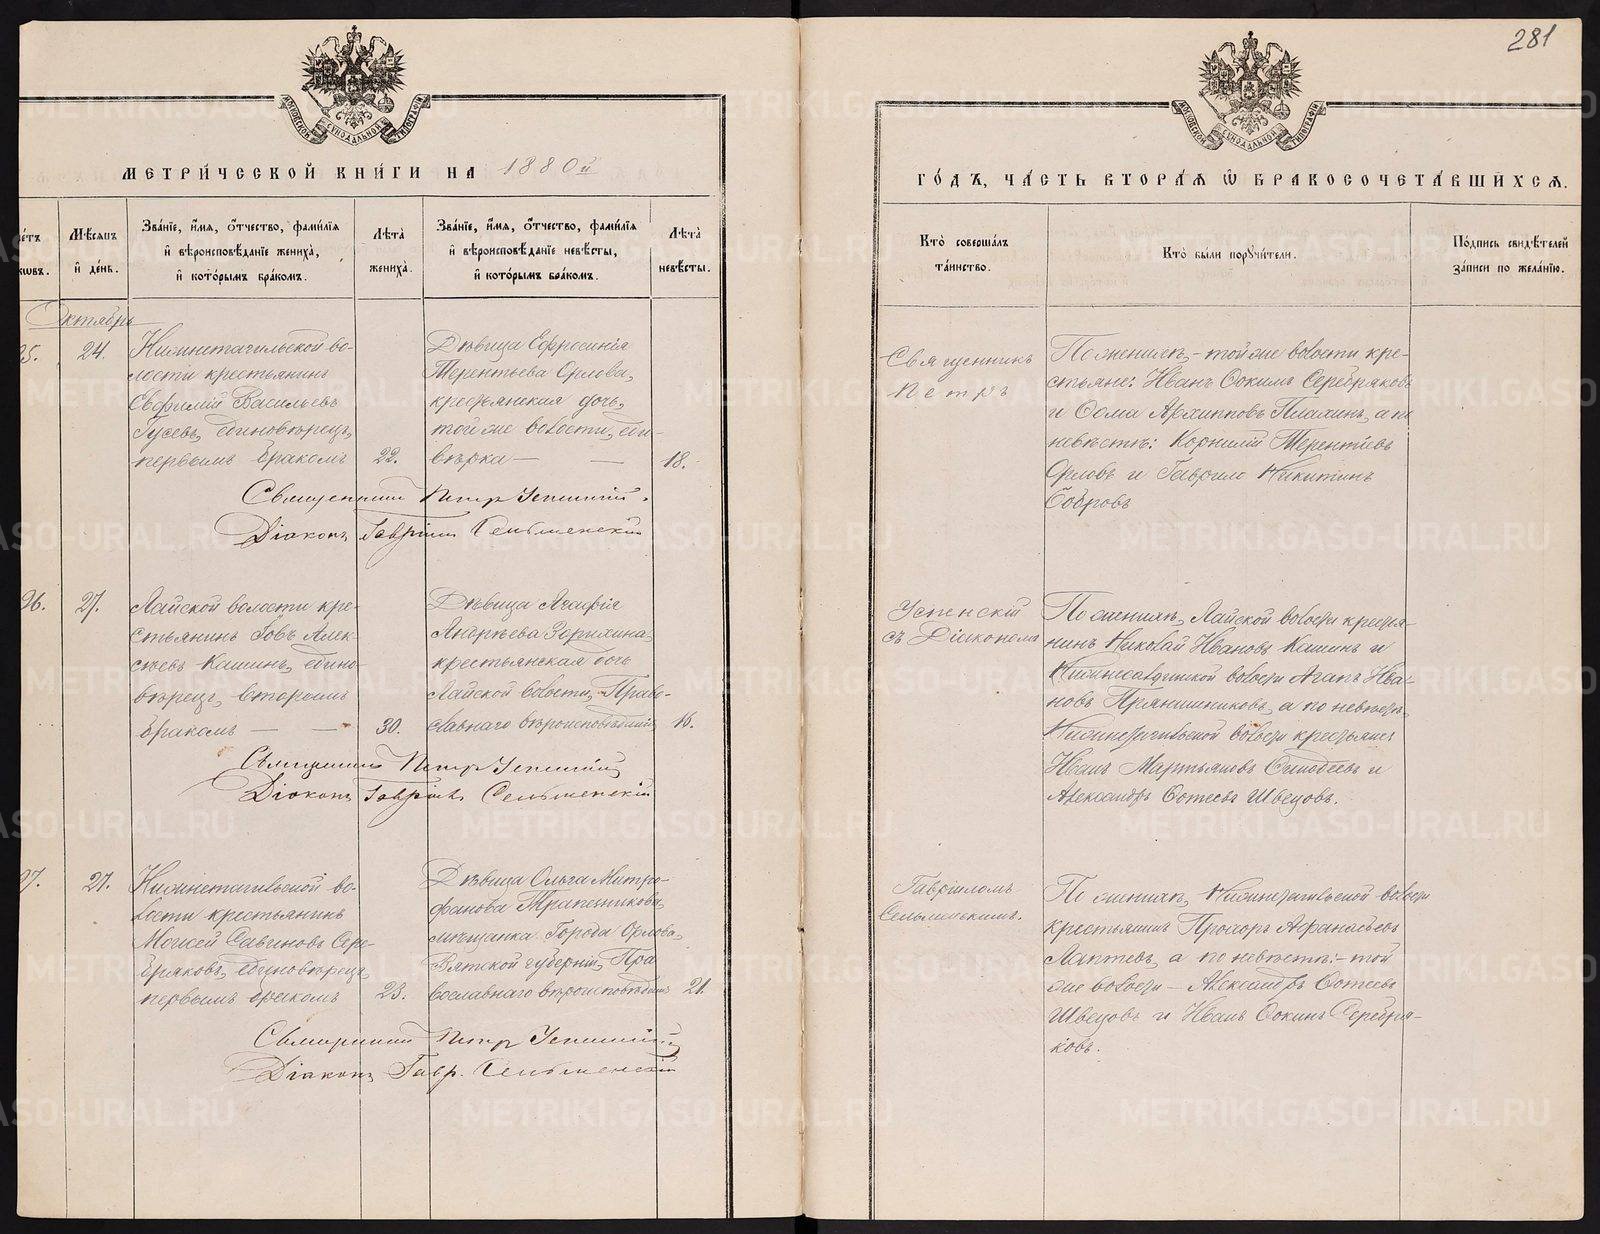 281
МОСКОВСКОЙ СѴНОДАЛЬНОЙ ТИПОГРАФІИ
МОСКОВСКОЙ СѴНОДАЛЬНОЙ ТИПОГРАФІИ
МЕТРИ́ЧЕСКОЙ КНИ́ГИ НА 1880й
ГО́ДЪ, ЧА́СТЬ ВТОРА́Я Ѡ БРАКОСОЧЕТА́ВШИХСЯ.
Мѣ́сяцъ и де́нь.
Зва́ніе, и́мя, о́тчество, фами́лія и вѣроисповѣ́даніе жениха̀, и кото́рымъ бра́комъ.
Лѣ́та жениха̀.
Зва́ніе, и́мя, о́тчество, фами́лія и вѣроисповѣ́даніе невѣ́сты, и кото́рымъ бра́комъ.
Лѣ́та невѣ́сты.
Кто̀ соверша́лъ та́инство.
Кто̀ бы́ли поручи́тели.
По́дпись свидѣ́телей за́писи по жела́нію.
Октябрь
24.
Нижнетагильской во-
лости крестьянинъ
Евфимій Васильевъ
Гусевъ, единовѣрецъ,
первымъ бракомъ
22.
Дѣвица Ефросинія
Терентьева Орлова,
крестьянская дочь,
той же волости, еди-
вѣрка — —
18.
Священникъ
Петръ
По женихѣ, - той же волости кре-
стьяне: Иванъ Фокинъ Серебряковъ
и Фома Архиповъ Плахинъ, а по
невѣстѣ: Корнилій Терентіевъ
Орловъ и Гаврило Никитинъ
Бобровъ
Священникъ Петръ Успенскій.
Діаконъ Гавріилъ Сельменскій
26.
27.
Лайской волости кре-
стьянинъ Іовъ Алек-
сѣевъ Кашинъ, едино-
вѣрецъ, вторымъ
бракомъ — —
30.
Дѣвица Агафія
Андрѣева Зорихина,
крестьянская дочь
Лайской волости, Право-
славнаго вѣроисповѣданія,
16.
Успенскій
съ Діакономъ
По женихѣ, Лайской волости крестья-
нинъ Николай Ивановъ Кашинъ и
Нижнесалдинской волости Агапъ Ива-
новъ Пряничниковъ, а по невѣстѣ,
Нижнетагильской волости крестьяне
Иванъ Мартьяновъ и
Александръ Фотеевъ Швецовъ.
Священникъ Петръ Успенскій
Діаконъ Гавріилъ Сельменскій
27.
27.
Нижнетагильской во-
лости крестьянинъ
Моисей Савиновъ Сере-
бряковъ, единовѣрецъ,
первымъ бракомъ
23.
Дѣвица Ольга Митро-
фанова Трапезникова,
мѣщанка Города Орлова,
Вятской губерніи, Пра
вославнаго вѣроисповѣданія
21.
Гавріиломъ
Сельменскимъ.
По женихѣ, Нижнетагильской волости
крестьянинъ Прохоръ Афанасьевъ
Лаптевъ, а по невѣстѣ: - той
же волости — Александръ Фотеевъ
Швецовъ и Иванъ Фокинъ Серебря-
ковъ.
Священникъ Петръ Успенскій
Діаконъ Гавр. Сельменскій
METRIKI.GASO-URAL.RU